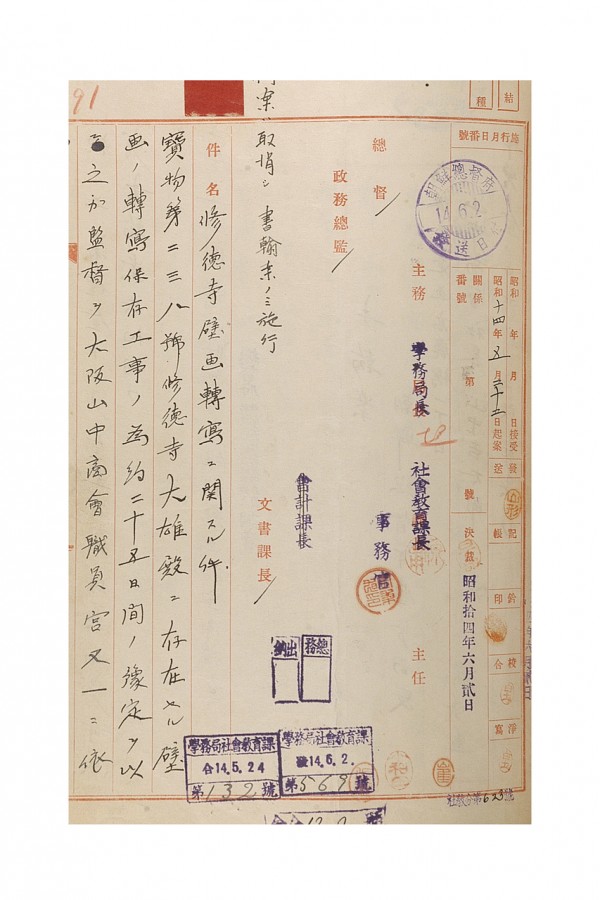 結
種
施行月日番號
朝鮮總督府
14.6.2
發送
昭和 年 月 日接受
昭和十四年五月二十二日起案
關係番號
第 號
發送
記帳
決裁 昭和拾四年六月貳日
印
校合
淨寫
主務 學務局長 社會教育課長 主任
事務官
總督
政務總監
會計課長
文書課長
總務
出納
案ハ取消シ書翰案ノミ施行
件名 修德寺壁画轉寫ニ關スル件
寶物第二三八號修德寺大雄殿ニ存在スル壁
画ノ轉寫保存工事ノ為約二十五日間ノ豫定ヲ以
之カ監督ヲ大阪山中商會職員宮又一ニ依
學務局社會教育課
發14.6.2.
第569號
學務局社會教育課
合14.5.24
第132號
社教合第623號
91